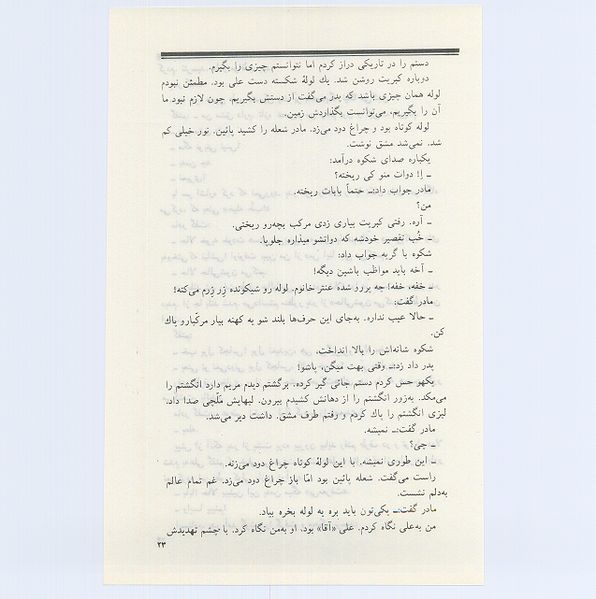 دستم را در تاریکی دراز کردم اما نتوانستم چیزی را بگیرم.
دوباره کبریت روشن شد. یك لولهٔ شکسته دست علی بود. مطمئن نبودم
لوله همان چیزی باشد که پدر می‌گفت از دستش بگیریم. چون لازم نبود ما
آن را بگیریم، می‌توانست بگذاردش زمین.
لوله کوتاه بود و چراغ دود می‌زد. مادر شعله را کشید پائین. نور خیلی کم
شد. نمی‌شد مشق نوشت.
یکباره صدای شکوه درآمد:
ــ اِ! دوات منو کی ریخته؟
مادر جواب داد:ــ حتماً بابات ریخته.
من؟
ــ آره. رفتی کبریت بیاری زدی مرکب بچه‌رو ریختی.
ــ خُب تقصیر خودشه که دواتشو میذاره جلوپا.
شکوه با گریه جواب داد:
ــ آخه باید مواظب باشین دیگه!
ــ خفه، خفه! چه پررو شده عنتر خانوم. لوله رو شیکونده زِر زِرم می‌کنه!
مادر گفت:
ــ حالا عیب نداره. به‌جای این حرف‌ها بلند شو یه کهنه بیار مرکّبارو پاك
کن.
شکوه شانه‌اش را بالا انداخت.
پدر داد زد:ــ وقتی بهت میگن، پاشو!
یکهو حس کردم دستم جائی گیر کرده. برگشتم دیدم مریم دارد انگشتم را
می‌مکد. به‌زور انگشتم را از دهانش کشیدم بیرون. لبهایش مَلَچی صدا داد.
لیزی انگشتم را پاك کردم و رفتم طرف مشق. داشت دیر می‌شد.
مادر گفت:ــ نمیشه.
ــ چی؟
ــ این طوری نمیشه. با این لولهٔ کوتاه چراغ دود می‌زنه.
راست می‌گفت. شعله پائین بود امّا باز چراغ دود می‌زد. غم تمام عالم
به‌دلم نشست.
مادر گفت:ــ یکی‌تون باید بره یه لوله بخره بیاد.
من به‌علی نگاه کردم. علی «آقا» بود. او به‌من نگاه کرد. با چشم تهدیدش
۲۳